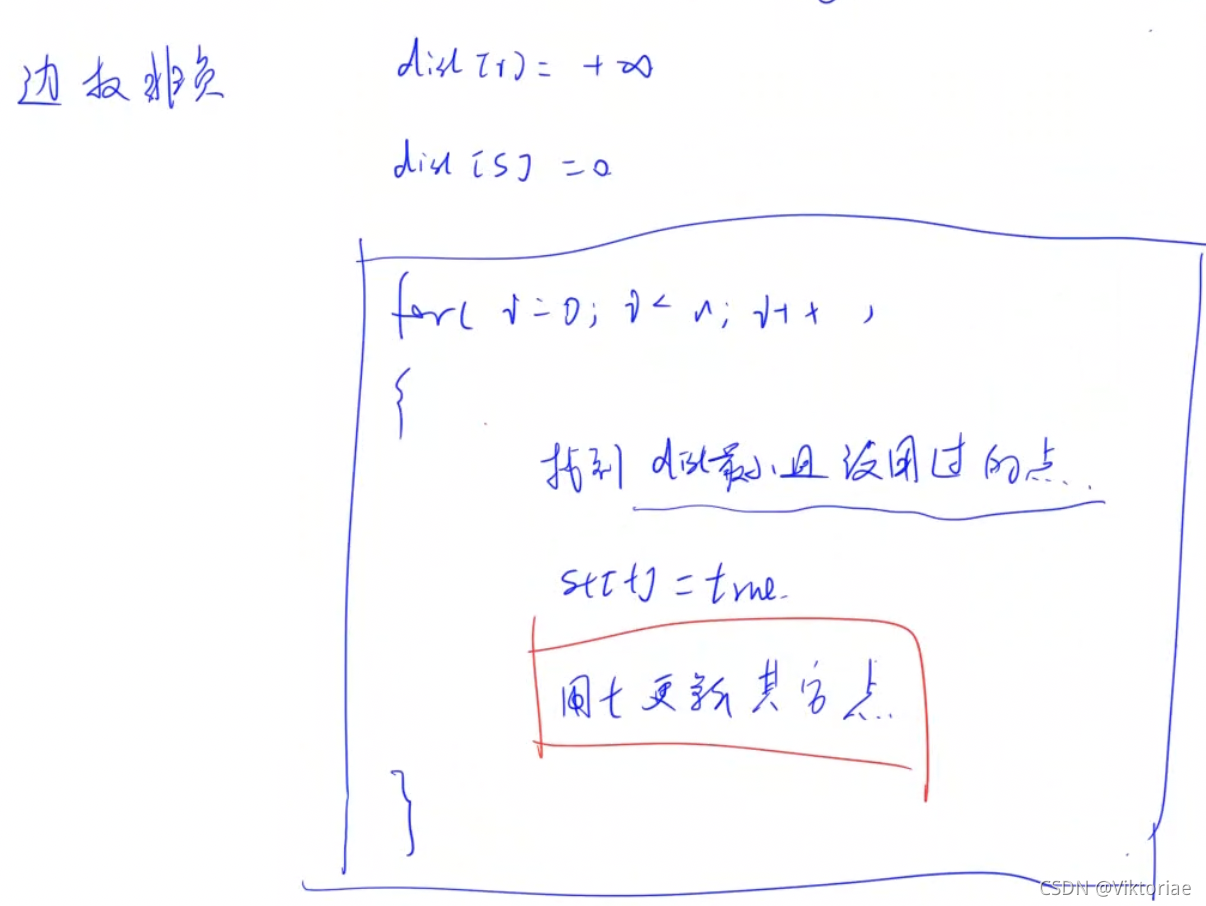 边权非负
dist[i] = +∞
dist[s] = 0
for( i=0; i< n; i++ )
{
找到 dist最小且没用过的点
st[t] = true
用t更新其它点
}
CSDN @Viktoriae